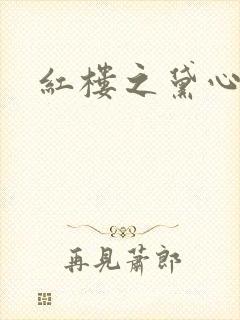 紅樓之黛心
再見蕭郎